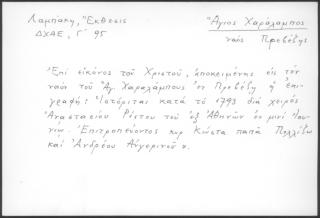 Λαμπάκη, Ἔκθεσις
ΔΧΑΕ, Γ´ 95
Ἅγιος Χαράλαμπος
ναός Πρεβέζης
Ἐπί εἰκόνος τοῦ Χριστοῦ, ἀποκειμένης εἰς τόν
ναόν τοῦ Ἁγ. Χαραλάμπους ἐν Πρεβέζῃ ἡ ἐπι-
γραφή: Ἱστόρηται κατά τό 1793 διά χειρός
Ἀναστασίου τοῦ ἐξ Ἀθηνῶν ἐν μηνί Ἰου-
Ἐπιτροπεύοντος κύρ Κώστα παπᾶ
καί Ἀνδρέου Αὐγερινοῦ